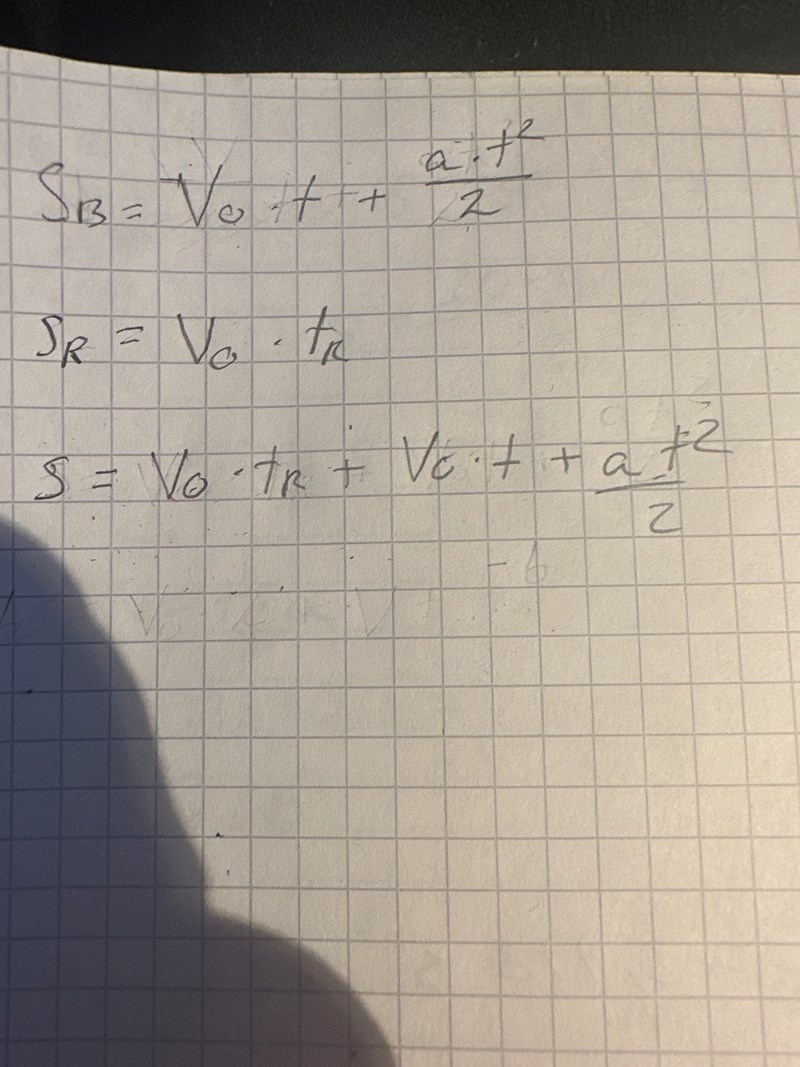 S_B = V_0 · t + (a · t^2)/2
S_R = V_0 · t_R
S = V_0 · t_R + V_0 · t + (a t^2)/2